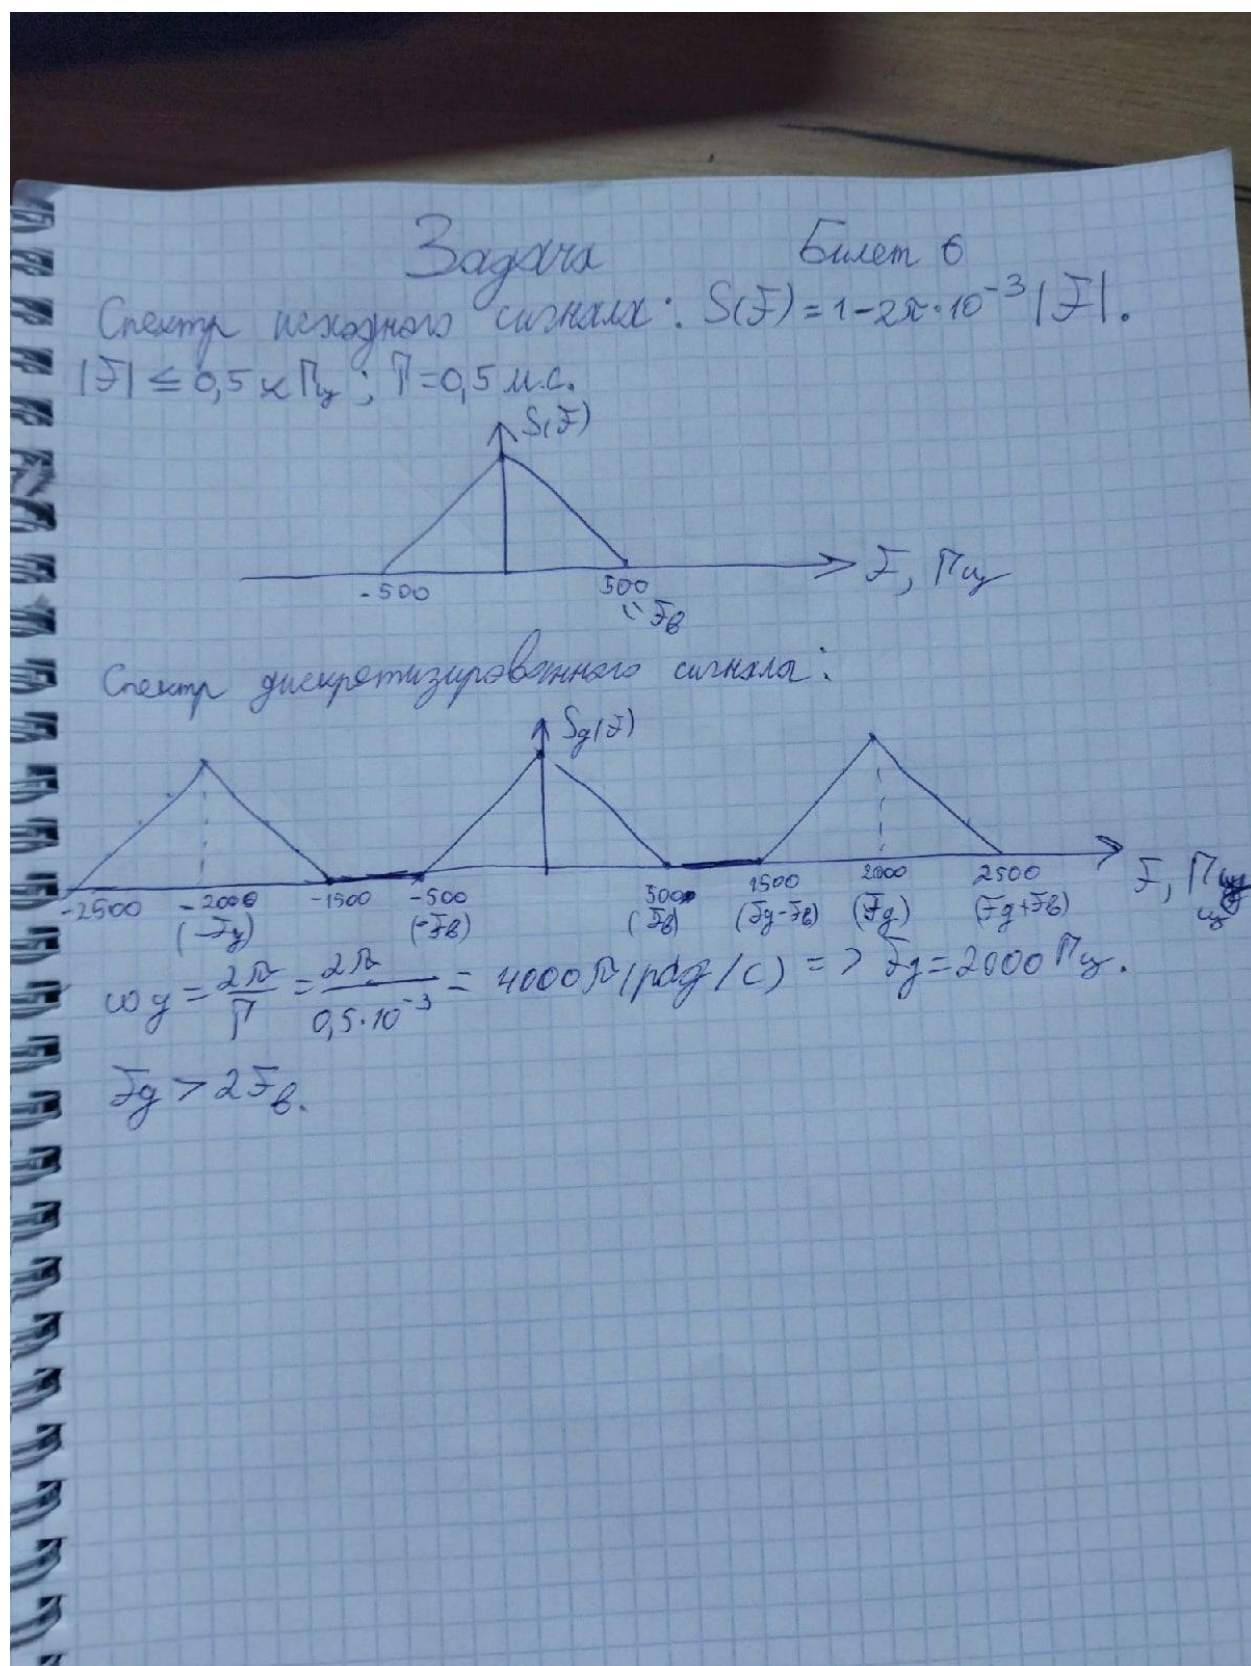 Задача Билет 6
Спектр исходного сигнала: S(F)=1-2π·10⁻³|F|.
|F| ≤ 0,5 кГц; T=0,5 м.с.
S(F)
F, Гц
-500 500
=Fв
Спектр дискретизированного сигнала:
Sд(F)
F, Гц
-2500 -2000 -1500 -500 500 1500 2000 2500
(-Fд) (-Fв) (Fв) (Fд-Fв) (Fд) (Fд+Fв)
ωд = 2π/T = 2π/0,5·10⁻³ = 4000π(рад/с) => Fд=2000 Гц.
Fд > 2Fв.